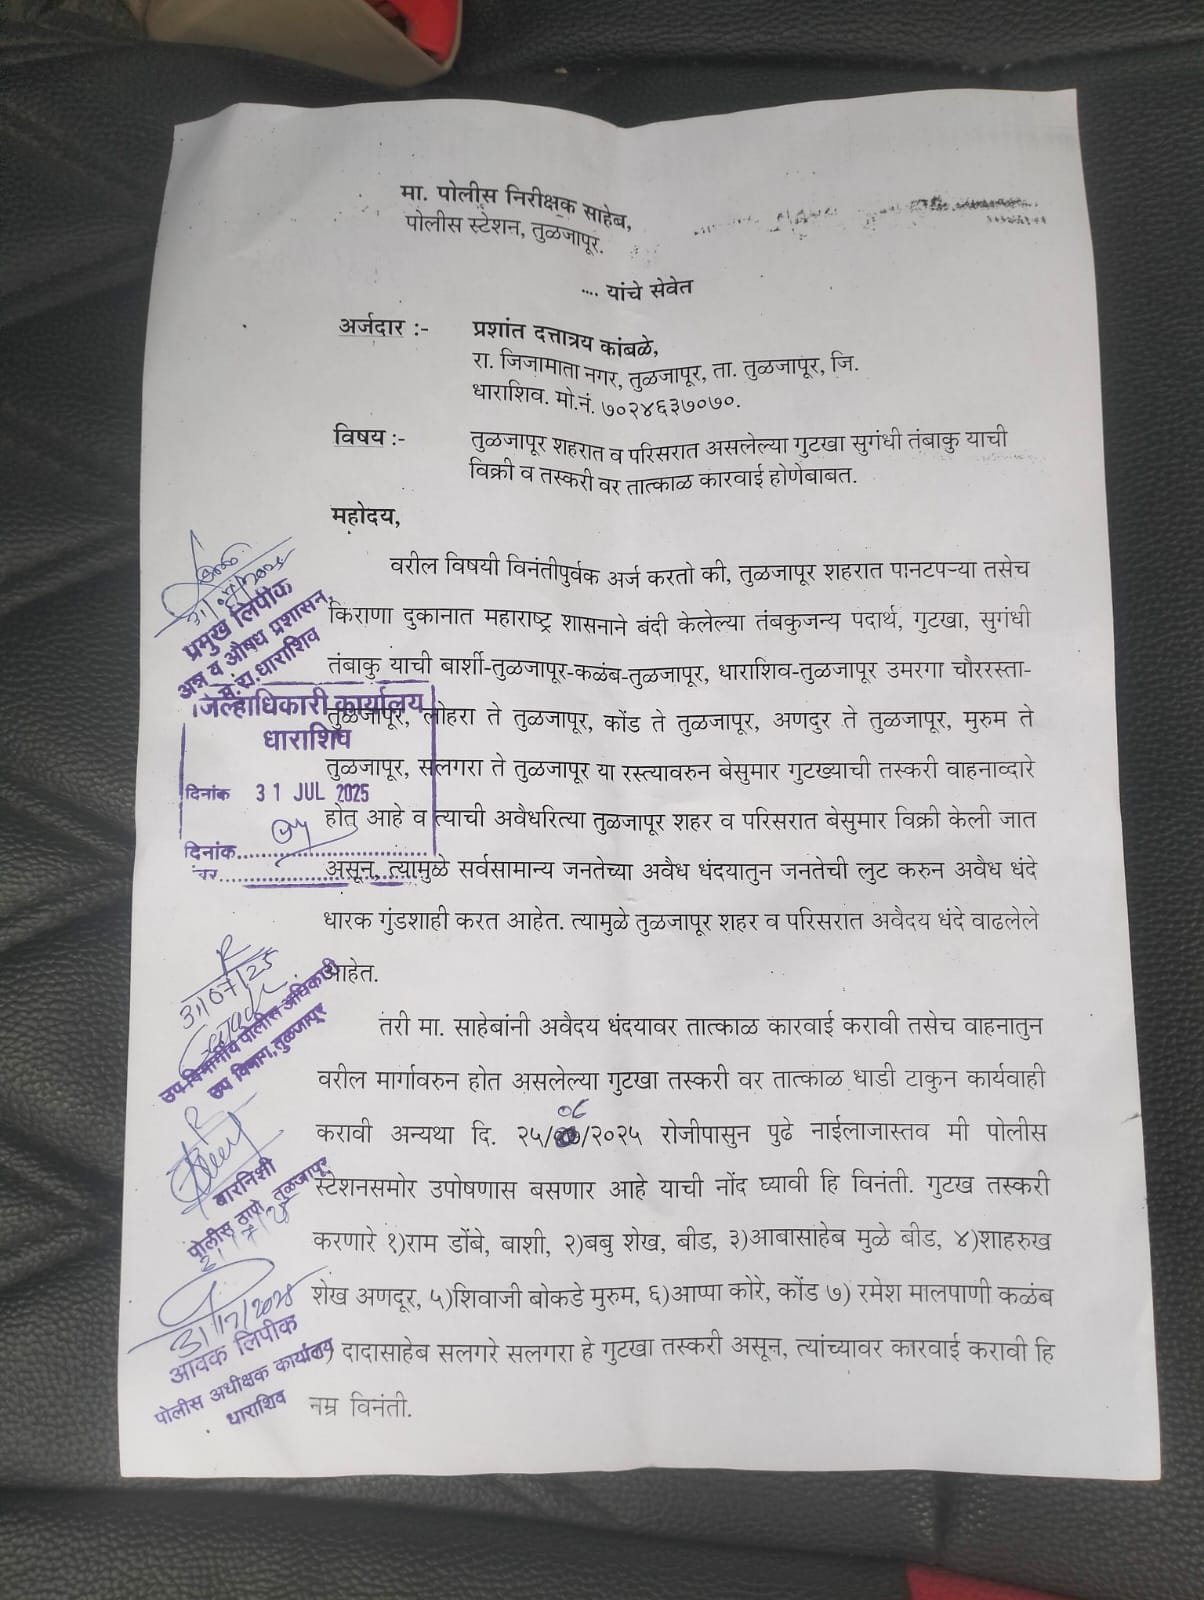 मा. पोलीस निरीक्षक साहेब,
पोलीस स्टेशन, तुळजापूर.
.... यांचे सेवेत
अर्जदार :- प्रशांत दत्तात्रय कांबळे,
रा. जिजामाता नगर, तुळजापूर, ता. तुळजापूर, जि.
धाराशिव. मो.नं. ७०२४६३७०७०.
विषय :- तुळजापूर शहरात व परिसरात असलेल्या गुटखा सुगंधी तंबाकु याची
विक्री व तस्करी वर तात्काळ कारवाई होणेबाबत.
महोदय,
वरील विषयी विनंतीपुर्वक अर्ज करतो की, तुळजापूर शहरात पानटपऱ्या तसेच
किराणा दुकानात महाराष्ट्र शासनाने बंदी केलेल्या तंबकुजन्य पदार्थ, गुटखा, सुगंधी
तंबाकु याची बार्शी-तुळजापूर-कळंब-तुळजापूर, धाराशिव-तुळजापूर उमरगा चौररस्ता-
तुळजापूर, लोहरा ते तुळजापूर, कोंड ते तुळजापूर, अणदुर ते तुळजापूर, मुरुम ते
तुळजापूर, सलगरा ते तुळजापूर या रस्त्यावरुन बेसुमार गुटख्याची तस्करी वाहनाव्दारे
होतु आहे व त्याची अवैधरित्या तुळजापूर शहर व परिसरात बेसुमार विक्री केली जात
असून, त्यामुळे सर्वसामान्य जनतेच्या अवैध धंदयातुन जनतेची लुट करुन अवैध धंदे
धारक गुंडशाही करत आहेत. त्यामुळे तुळजापूर शहर व परिसरात अवैदय धंदे वाढलेले
आहेत.
तरी मा. साहेबांनी अवैदय धंदयावर तात्काळ कारवाई करावी तसेच वाहनातुन
वरील मार्गावरुन होत असलेल्या गुटखा तस्करी वर तात्काळ धाडी टाकुन कार्यवाही
करावी अन्यथा दि. २५/०८/२०२५ रोजीपासुन पुढे नाईलाजास्तव मी पोलीस
स्टेशनसमोर उपोषणास बसणार आहे याची नोंद घ्यावी हि विनंती. गुटख तस्करी
करणारे १)राम डोंबे, बाशी, २)बबु शेख, बीड, ३)आबासाहेब मुळे बीड, ४)शाहरुख
शेख अणदूर, ५)शिवाजी बोकडे मुरुम, ६)आप्पा कोरे, कोंड ७) रमेश मालपाणी कळंब
) दादासाहेब सलगरे सलगरा हे गुटखा तस्करी असून, त्यांच्यावर कारवाई करावी हि
नम्र विनंती.
31/07/2025
प्रमुख लिपीक
अन्न व औषध प्रशासन,
म.रा.धाराशिव
जिल्हाधिकारी कार्यालय
धाराशिव
दिनांक 31 JUL 2025
दिनांक............
वर............
31/07/25
उप विभागीय पोलीस अधिकारी
उप विभाग, तुळजापूर
बारनिशी
पोलीस ठाणे, तुळजापूर
31/7/2025
आवक लिपीक
पोलीस अधीक्षक कार्यालय
धाराशिव